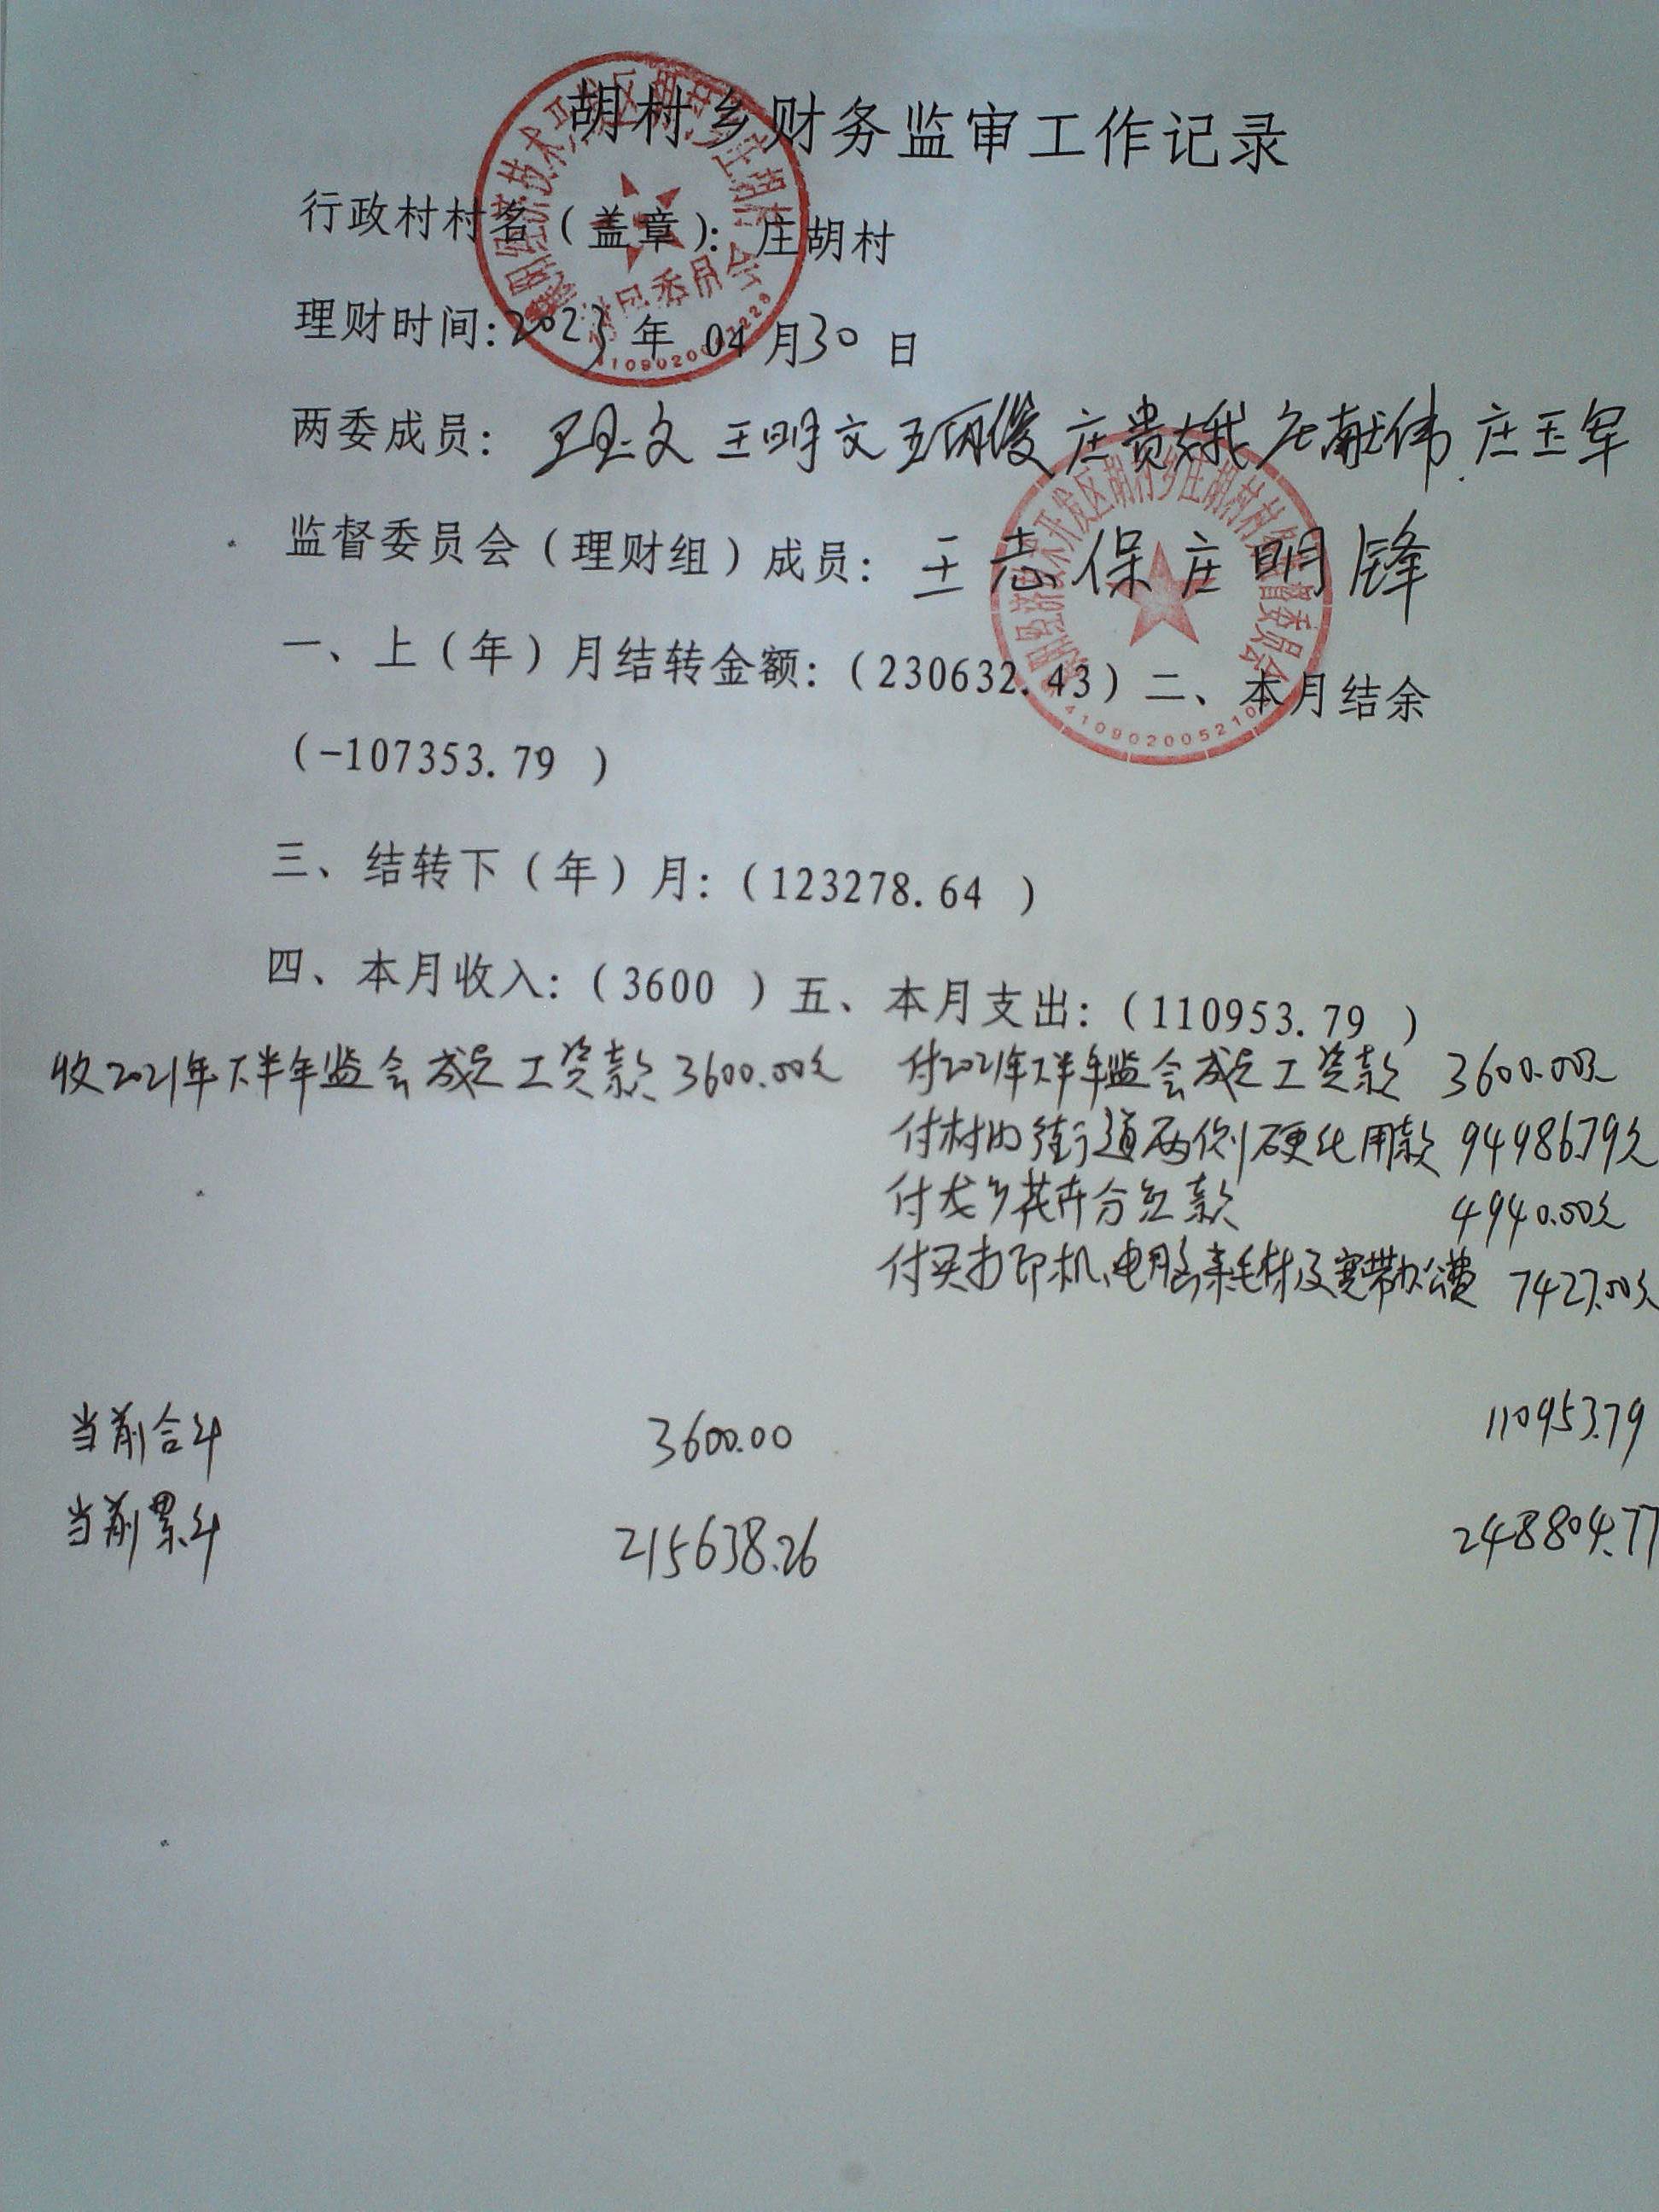 胡村乡财务监审工作记录
行政村村名（盖章）：庄胡村
理财时间：2023年 04月30 日
两委成员： 王明文 庄贵娥 庄献伟 庄玉军
监督委员会（理财组）成员：王志保 庄明锋
一、上（年）月结转金额：（230632.43）二、本月结余
（-107353.79 ）
三、结转下（年）月：（123278.64 ）
四、本月收入：（3600 ）五、本月支出：（110953.79 ）
收2021年下半年监会成员工资款3600.00元 付2021年下半年监会成员工资款 3600.00元
付村内街道两侧硬化用款 94986.79元
付龙乡花卉分红款 4940.00元
付买打印机、电脑耗材及宽带办公费 7427.00元
当前合计 3600.00 110953.79
当前累计 215638.26 248804.77
村民委员会
开发区胡村乡庄胡村村务监督委员会
410902005210